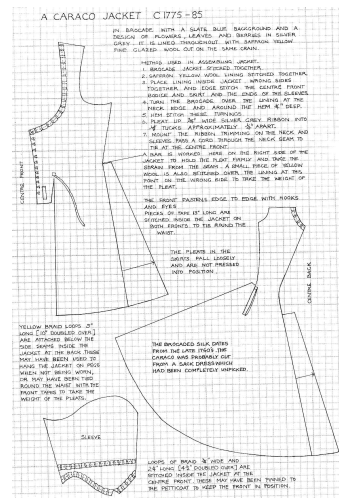 A CARACO JACKET C1775-85
IN BROCADE WITH A SLATE BLUE BACKGROUND AND A
DESIGN OF FLOWERS, LEAVES AND BERRIES IN SILVER
GREY. IT IS LINED THROUGHOUT WITH SAFFRON YELLOW
FINE GLAZED WOOL CUT ON THE SAME GRAIN.
METHOD USED IN ASSEMBLING JACKET.
1. BROCADE JACKET STITCHED TOGETHER.
2. SAFFRON YELLOW WOOL LINING STITCHED TOGETHER
3. PLACE LINING INSIDE JACKET WRONG SIDES
TOGETHER, AND EDGE STITCH THE CENTRE FRONT
BODICE AND SKIRT AND THE ENDS OF THE SLEEVES
4. TURN THE BROCADE OVER THE LINING AT THE
NECK EDGE AND AROUND THE HEM DEEP.
5. HEM STITCH THESE TURNINGS
6. PLEAT UP WIDE SILVER GREY RIBBON INTO
TUCKS APPROXIMATELY APART.
7. MOUNT THE RIBBON TRIMMING ON THE NECK AND
SLEEVES PASS A CORD THROUGH THE NECK SEAM TO
TIE AT THE CENTRE FRONT.
A BAR IS WORKED HERE ON THE RIGHT SIDE OF THE
JACKET TO HOLD THE PLEAT FIRMLY AND TAKE THE
STRAIN FROM THE SEAM. A SMALL PIECE OF YELLOW
WOOL IS ALSO STITCHED OVER THE LINING AT THIS
POINT ON THE WRONG SIDE TO TAKE THE WEIGHT OF
THE PLEAT.
CENTRE FRONT
THE FRONT FASTENS EDGE TO EDGE WITH HOOKS
AND EYES
PIECES OF TAPE 13" LONG ARE
STITCHED INSIDE THE JACKET ON
BOTH FRONTS TO TIE ROUND THE
WAIST.
THE PLEATS IN THE
SKIRTS FALL LOOSELY
AND ARE NOT PRESSED
INTO POSITION.
CENTRE BACK
YELLOW BRAID LOOPS 5"
LONG [10" DOUBLED OVER]
ARE ATTACHED BELOW THE
SIDE SEAMS INSIDE THE
JACKET AT THE BACK. THESE
MAY HAVE BEEN USED TO
HANG THE JACKET ON PEGS
WHEN NOT BEING WORN,
OR MAY HAVE BEEN TIED
ROUND THE WAIST WITH THE
FRONT TAPES TO TAKE THE
WEIGHT OF THE PLEATS.
THE BROCADED SILK DATES
FROM THE LATE 1760'S. THE
CARACO WAS PROBABLY CUT
FROM A SACK DRESS WHICH
HAD BEEN COMPLETELY UNPICKED.
SLEEVE
LOOPS OF BRAID WIDE AND
LONG DOUBLED OVER] ARE
STITCHED INSIDE THE JACKET AT THE
CENTRE FRONT. THESE MAY HAVE BEEN PINNED TO
THE PETTICOAT TO KEEP THE FRONT IN POSITION.